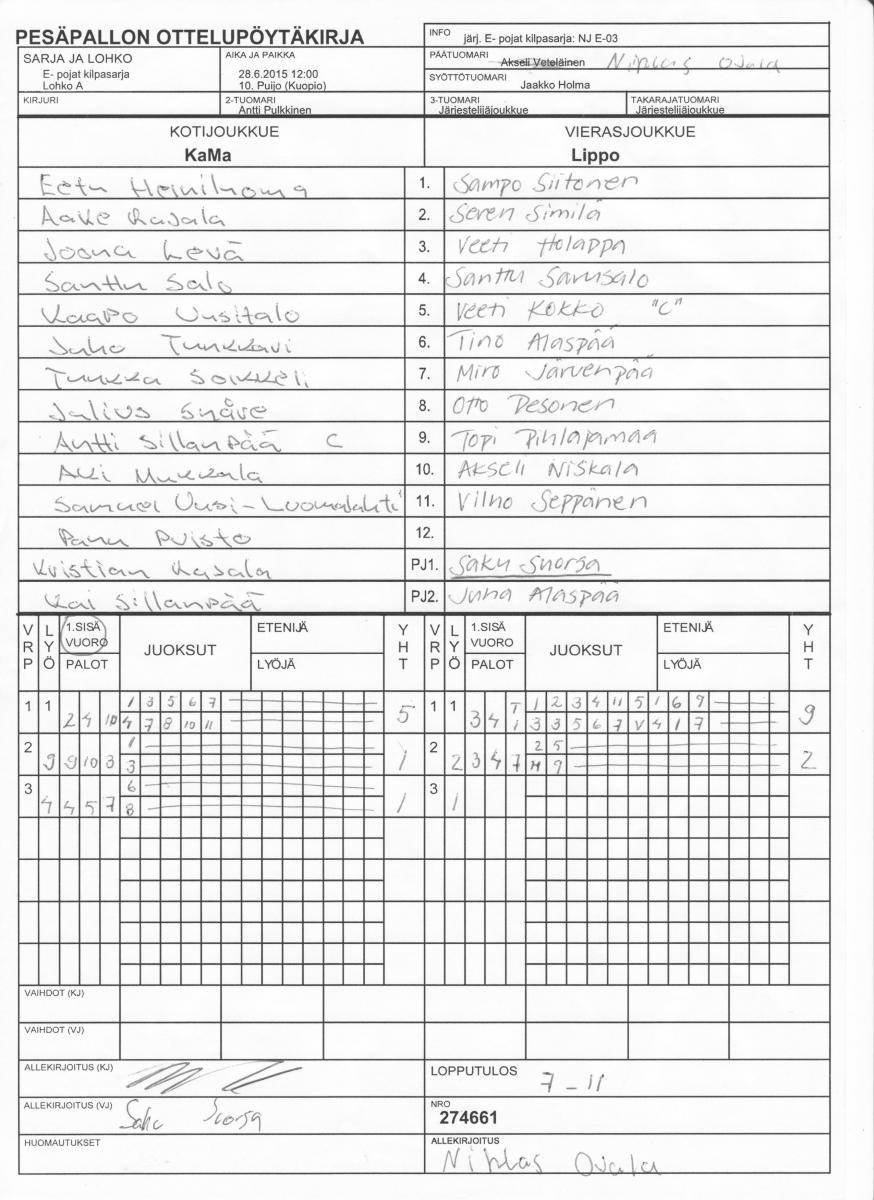 PESÄPALLON OTTELUPÖYTÄKIRJA
INFO järj. E- pojat kilpasarja: NJ E-03
SARJA JA LOHKO
E- pojat kilpasarja
Lohko A
AIKA JA PAIKKA
28.6.2015 12:00
10. Puijo (Kuopio)
PÄÄTUOMARI Akseli Veteläinen Niklas Ojala
SYÖTTÖTUOMARI Jaakko Holma
KIRJURI
2-TUOMARI Antti Pulkkinen
3-TUOMARI Järjestelijäjoukkue
TAKARAJATUOMARI Järjestelijäjoukkue
KOTIJOUKKUE VIERASJOUKKUE
KaMa Lippo
Eetu Heiniluoma 1. Sampo Siitonen
Aake Kasala 2. Seren Similä
Joona Levä 3. Veeti Holappa
Santtu Salo 4. Santtu Savusalo
Kaapo Uusitalo 5. Veeti Kokko "C"
Juho Tunkkari 6. Tino Alaspää
Tuukka Soikkeli 7. Miro Järvenpää
Julius Snåre 8. Otto Pesonen
Antti Sillanpää C 9. Topi Pihlajamaa
Aki Mukkala 10. Akseli Niskala
Samuel Uusi-Luomalahti 11. Vilho Seppänen
Panu Puisto 12.
Kristian Kasala PJ1. Saku Suorsa
Kai Sillanpää PJ2. Juha Alaspää
VRP LYÖ 1.SISÄ VUORO PALOT JUOKSUT ETENIJÄ LYÖJÄ YHT VRP LYÖ 1.SISÄ VUORO PALOT JUOKSUT ETENIJÄ LYÖJÄ YHT
1 1 1 3 5 6 7 1 1 T 1 2 3 4 11 5 1 6 9
2 4 10 4 7 8 10 11 5 3 4 1 3 3 5 6 7 V 4 1 7 9
2 1 2 2 5
9 9 10 3 3 1 2 3 4 7 H 9 2
3 6 3
4 4 5 7 8 1 1
VAIHDOT (KJ)
VAIHDOT (VJ)
ALLEKIRJOITUS (KJ) LOPPUTULOS 7 - 11
ALLEKIRJOITUS (VJ) Saku Suorsa NRO 274661
HUOMAUTUKSET ALLEKIRJOITUS Niklas Ojala